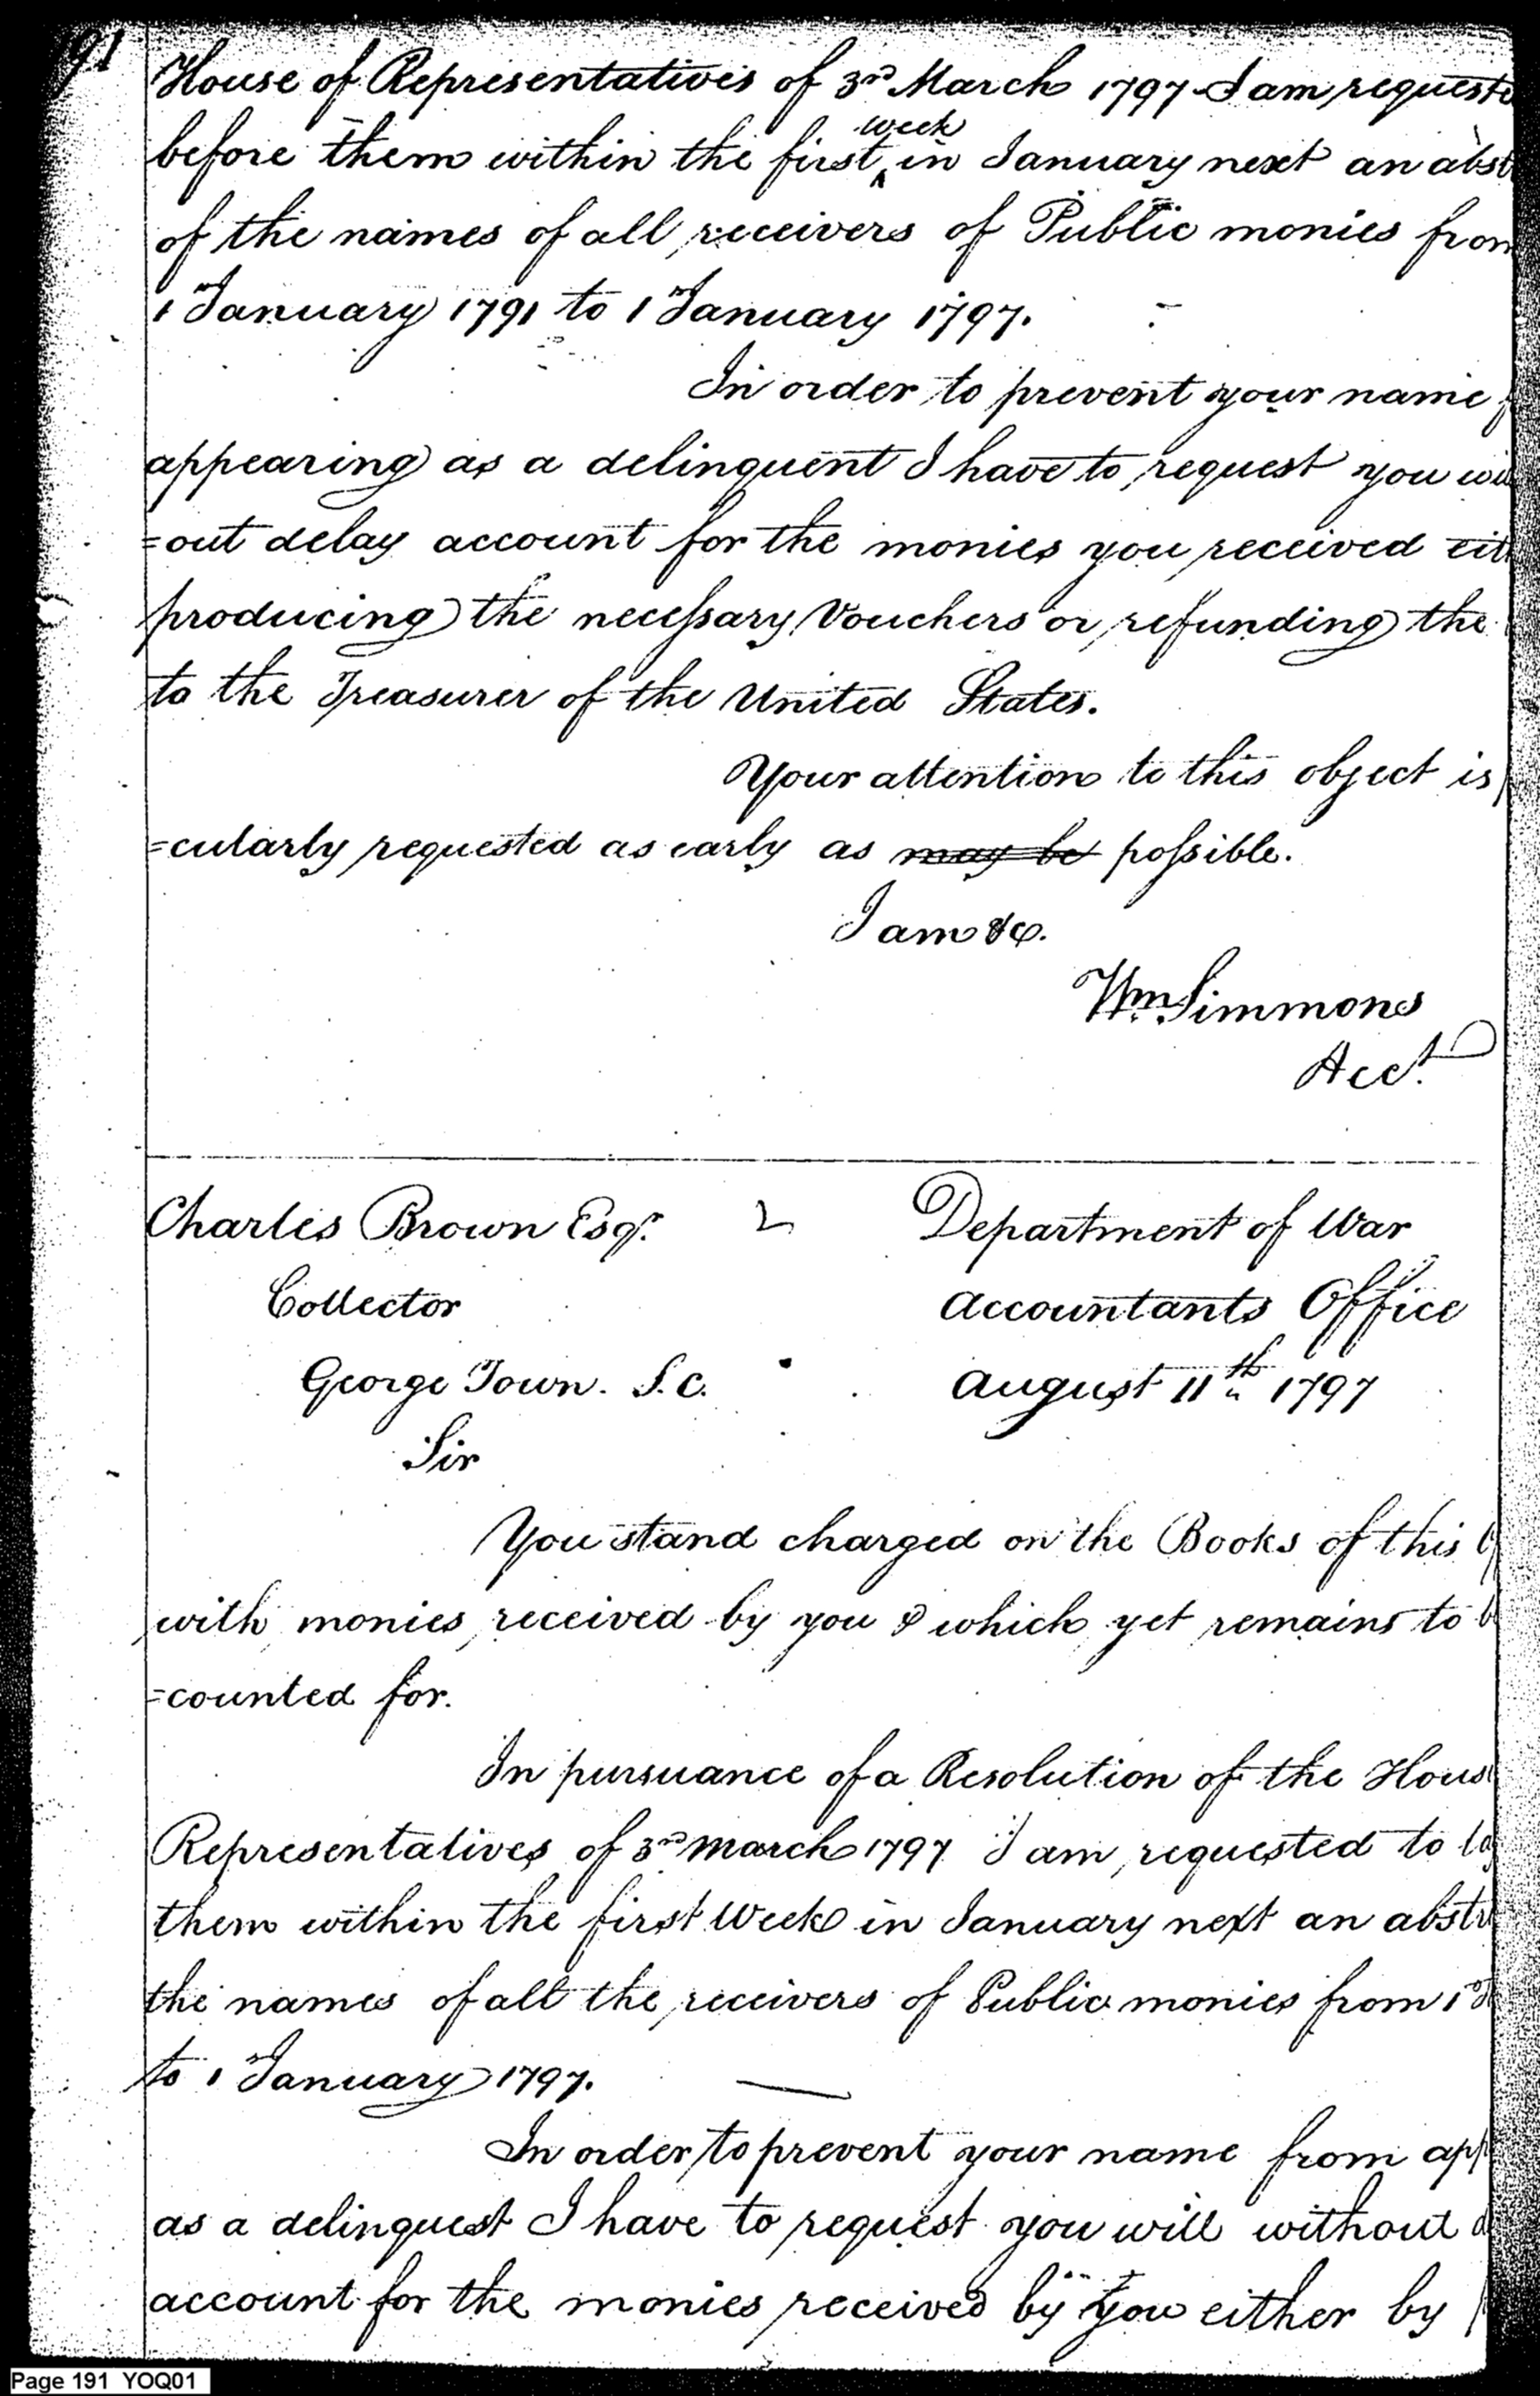 191
House of Representatives of 3rd March 1797 I am requeste
week
before them within the first ^ in January next an abst
of the names of all receivers of Public monies from
1 January 1791 to 1 January 1797.
In order to prevent your name f
appearing as a delinquent I have to request you wi
=out delay account for the monies you received eit
producing the necessary Vouchers or refunding the
to the Treasurer of the United States.
Your attention to this object is p
=cularly requested as early as may be possible.
I am &c.
Wm. Simmons
Acct.
Charles Brown Esqr. Department of War
Collector Accountants Office
George Town. S.C. August 11th 1797
Sir
You stand charged on the Books of this Of
with monies received by you & which yet remains to b
=counted for.
In pursuance of a Resolution of the Hous
Representatives of 3rd March 1797 I am requested to la
them within the first Week in January next an abstr
the names of all the receivers of Public monies from 1
to 1 January 1797.
In order to prevent your name from app
as a delinquest I have to request you will without d
account for the monies received by you either by p
Page 191 YOQ01